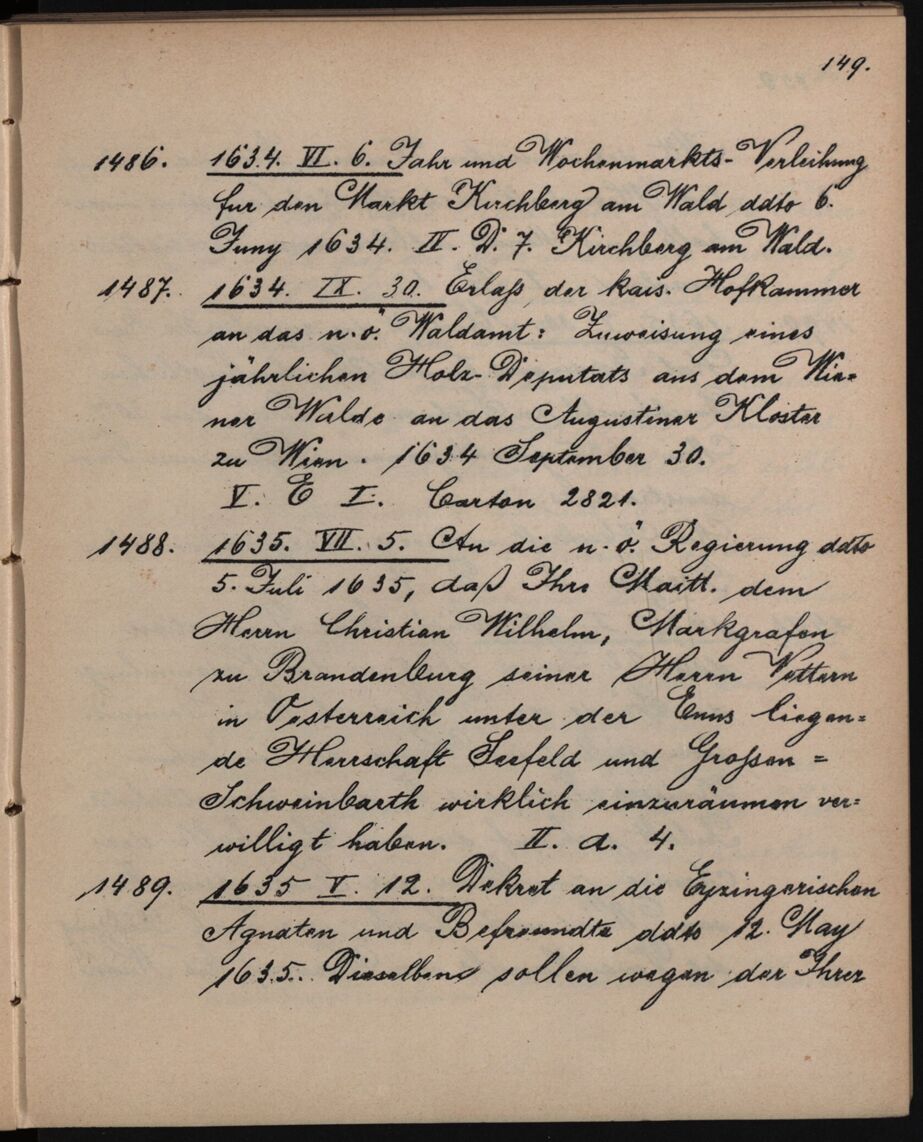 149.
1486. 1634. VI. 6. Jahr und Wochenmarkts-Verleihung
fur den Markt Kirchberg am Wald ddto 6.
Juny 1634. IV. D. 7. Kirchberg am Wald.
1487. 1634. IX. 30. Erlaß der kais. Hofkammer
an das n.ö. Waldamt: Zuweisung eines
jährlichen Holz-Deputats aus dem Wie=
ner Walde an das Augustiner Kloster
zu Wien. 1634 September 30.
V. E I. Carton 2821.
1488. 1635. VII. 5. An die n.ö. Regierung ddto
5. Juli 1635, daß Ihre Maitt. dem
Herrn Christian Wilhelm, Markgrafen
zu Brandenburg seiner Herrn Vettern
in Oesterreich unter der Enns liegen=
de Herrschaft Seefeld und Großen=
Schweinbarth wirklich einzuräumen ver=
willigt haben. II. A. 4.
1489. 1635 V. 12. Dekret an die Eyzingerischen
Agnaten und Befreundte ddto 12. May
1635. Dieselben sollen wegen der Ihrer